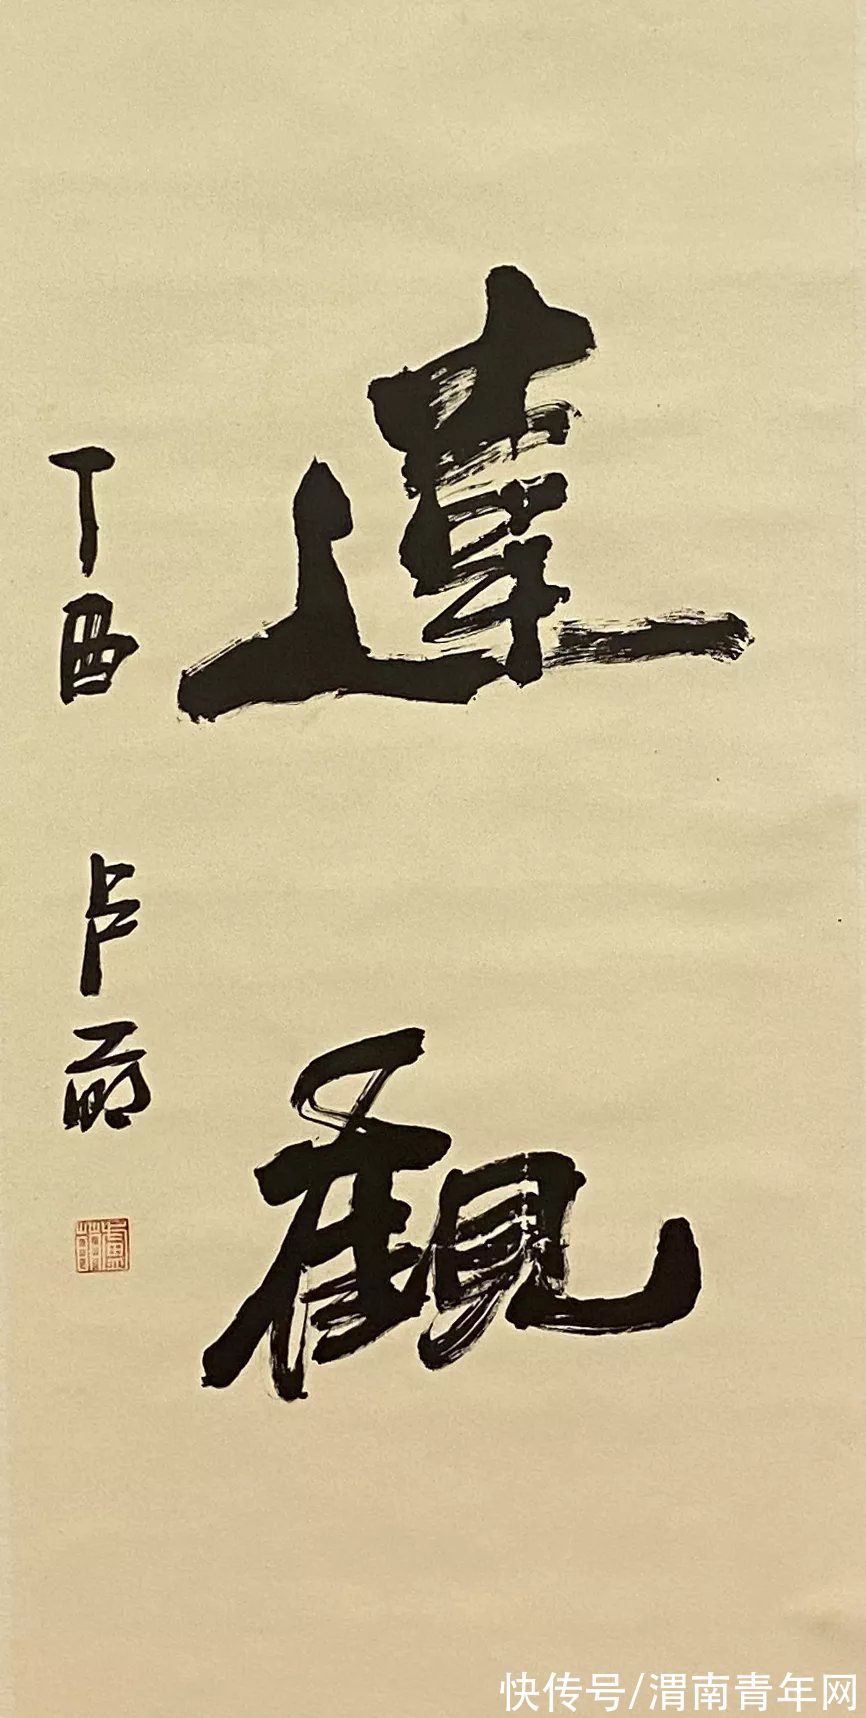 達觀
丁酉 卢萌
快传号/渭南青年网